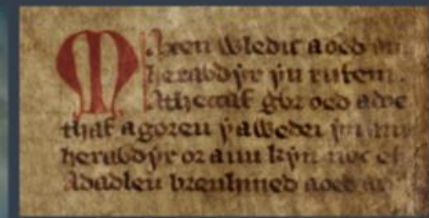 Maxen wledic aoed am
herawdyr yn rufein.
Athecaf gwr oed adoe
thaf agoreu yawedei yn am
herawdyr or auu kyn noc ef
Adadleu brenhined aoed